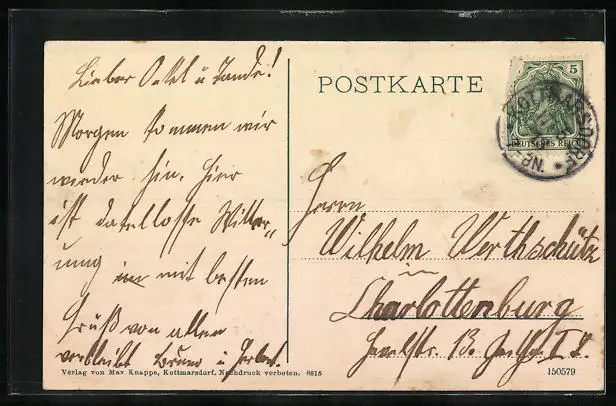 Lieber Onkel u Tante!
Morgen kommen wir
wieder hin. Hier
ist tadellose Witter-
ung mit besten
Gruß von allen
verbleibt Bruno u
Verlag von Max Knappe, Kottmarsdorf. Nachdruck verboten. 8815
POSTKARTE
5
DEUTSCHES REICH
KOTTMARSDORF
Herrn
Wilhelm Werthschütz
in
Charlottenburg
13.
150579